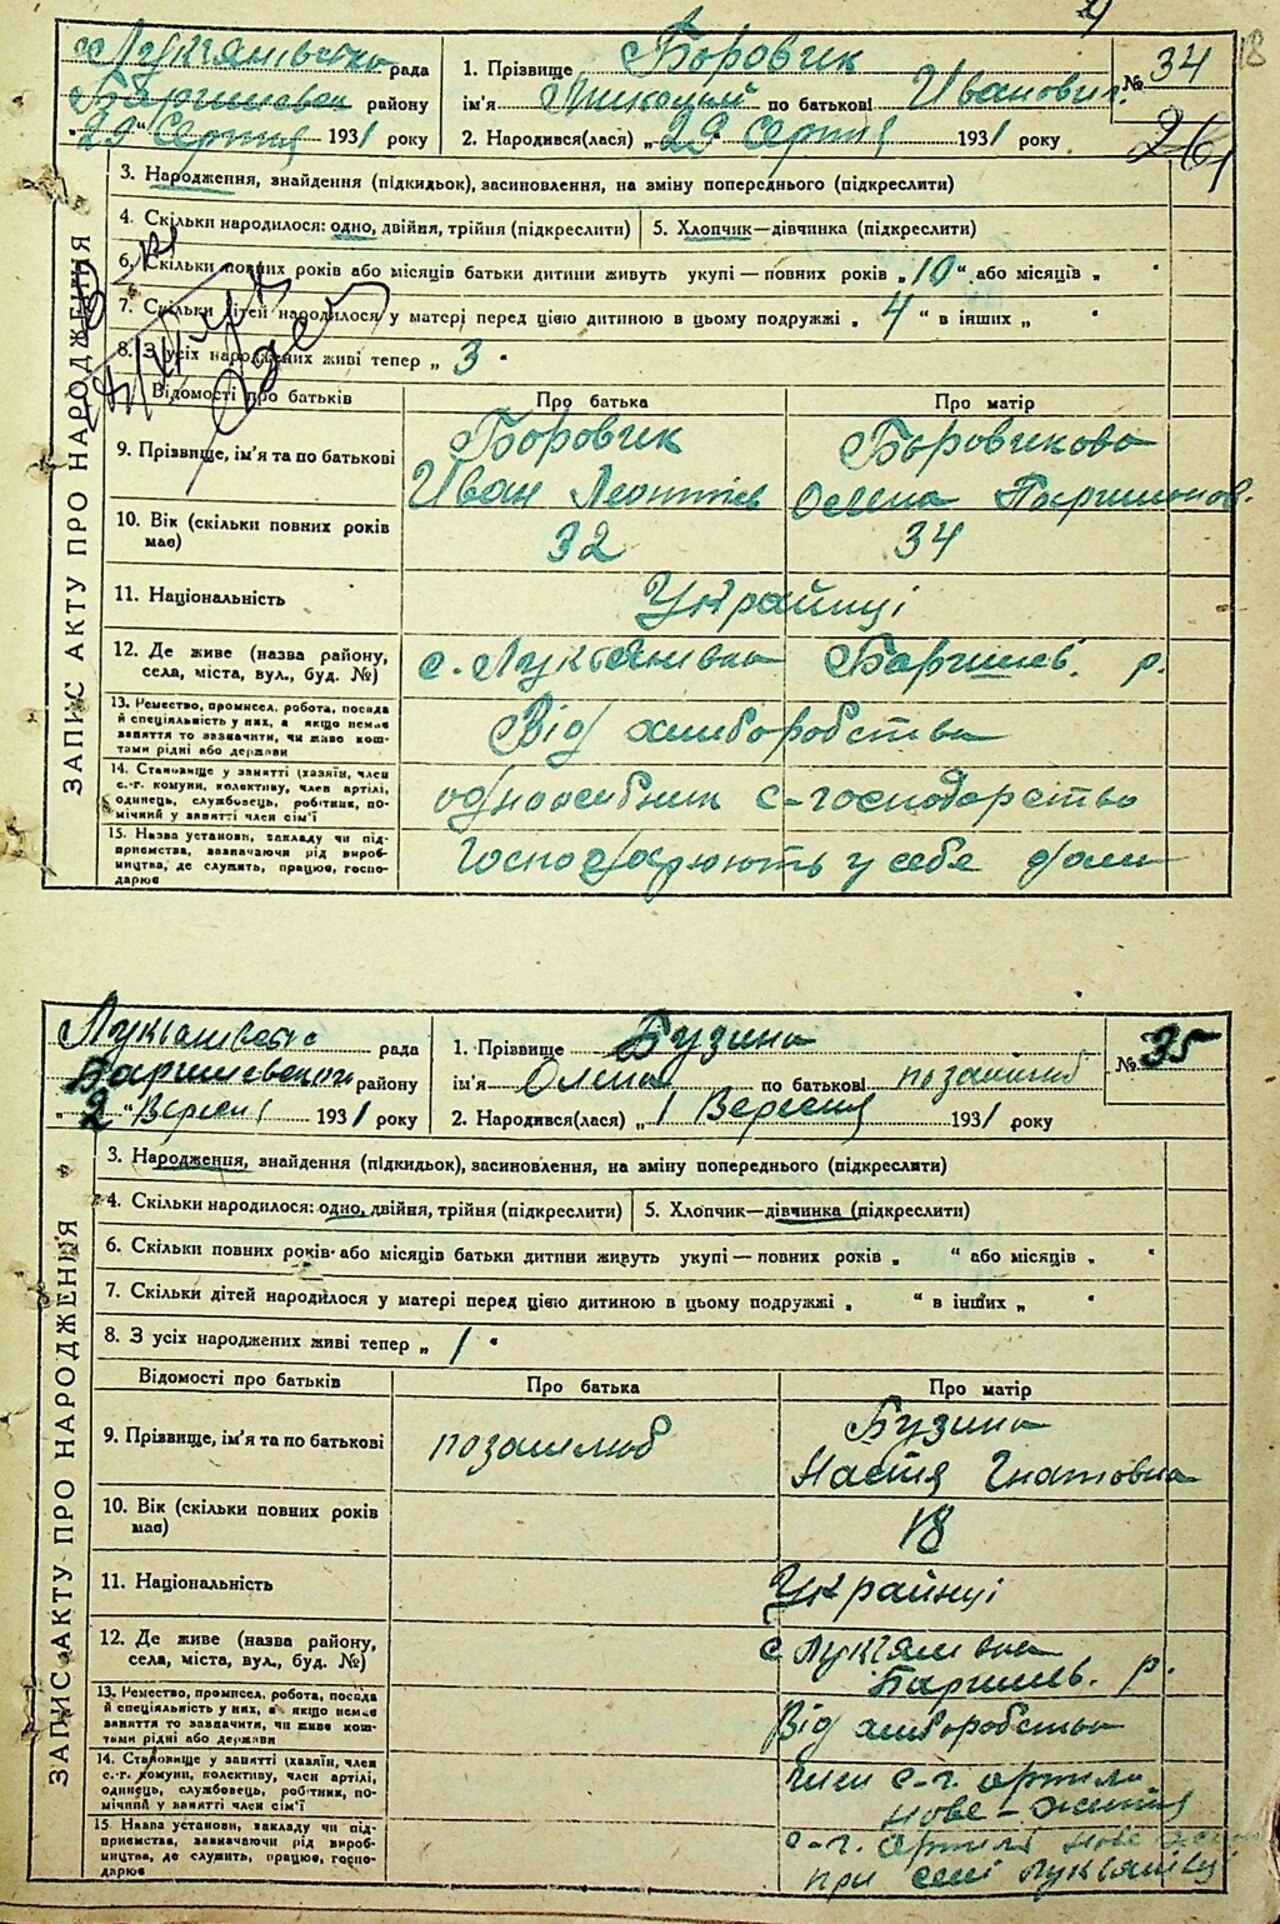 18
Лук'янівська рада
Баришевськ району
"29" Серпня 1931 року
1. Прізвище Боровик
ім'я Микола по батькові Иванович
2. Народився(лася) „29 Серпня 1931 року
№ 34
26
ЗАПИС АКТУ ПРО НАРОДЖЕННЯ
3. Народження, знайдення (підкидьок), засиновлення, на зміну попереднього (підкреслити)
4. Скільки народилося: одно, двійня, трійня (підкреслити) 5. Хлопчик—дівчинка (підкреслити)
6. Скільки повних років або місяців батьки дитини живуть укупі — повних років „10“ або місяців „ "
7. Скільки дітей народилося у матері перед цією дитиною в цьому подружжі „ 4 “ в інших „ "
8. З усіх народжених живі тепер „ 3 "
Відомості про батьків Про батька Про матір
9. Прізвище, ім'я та по батькові
Боровик Боровикова
Иван Леонтів Олена Паримонов.
10. Вік (скільки повних років має) 32 34
11. Національність Українці
12. Де живе (назва району, села, міста, вул., буд. №)
с. Лук'янівка Баришів. р.
13. Ремество, промисел, робота, посада
й спеціяльність у них, а якщо немає
заняття то зазначити, чи живе кош-
тами рідні або держави
Від хліборобства
14. Становище у занятті (хазяїн, член
с.-г. комуни, колективу, член артілі,
одинець, службовець, робітник, по-
мічний у занятті член сім'ї
одноосібник с-господарство
15. Назва установи, закладу чи під-
приємства, зазначаючи рід вироб-
ництва, де служить, працює, госпо-
дарює
Господарюють у себе дома
Лукьянівська рада
Баришевского району
„2“ Вересня 1931 року
1. Прізвище Бузина
ім'я Олена по батькові позашлюб
2. Народився(лася) „1 Вересня 1931 року
№ 35
ЗАПИС АКТУ ПРО НАРОДЖЕННЯ
3. Народження, знайдення (підкидьок), засиновлення, на зміну попереднього (підкреслити)
4. Скільки народилося: одно, двійня, трійня (підкреслити) 5. Хлопчик—дівчинка (підкреслити)
6. Скільки повних років або місяців батьки дитини живуть укупі — повних років „ “ або місяців „ "
7. Скільки дітей народилося у матері перед цією дитиною в цьому подружжі „ “ в інших „ "
8. З усіх народжених живі тепер „ 1 "
Відомості про батьків Про батька Про матір
9. Прізвище, ім'я та по батькові
позашлюб Бузина
Настя Гнатовна
10. Вік (скільки повних років має) 18
11. Національність Українці
12. Де живе (назва району, села, міста, вул., буд. №)
с Лук'янівка
Баришів. р.
13. Ремество, промисел, робота, посада
й спеціяльність у них, а якщо немає
заняття то зазначити, чи живе кош-
тами рідні або держави
Від хліборобства
14. Становище у занятті (хазяїн, член
с.-г. комуни, колективу, член артілі,
одинець, службовець, робітник, по-
мічний у занятті член сім'ї
член с-г. артілі
нове-життя
15. Назва установи, закладу чи під-
приємства, зазначаючи рід вироб-
ництва, де служить, працює, госпо-
дарює
с-г. артілі нове
при селі Лукьянівці